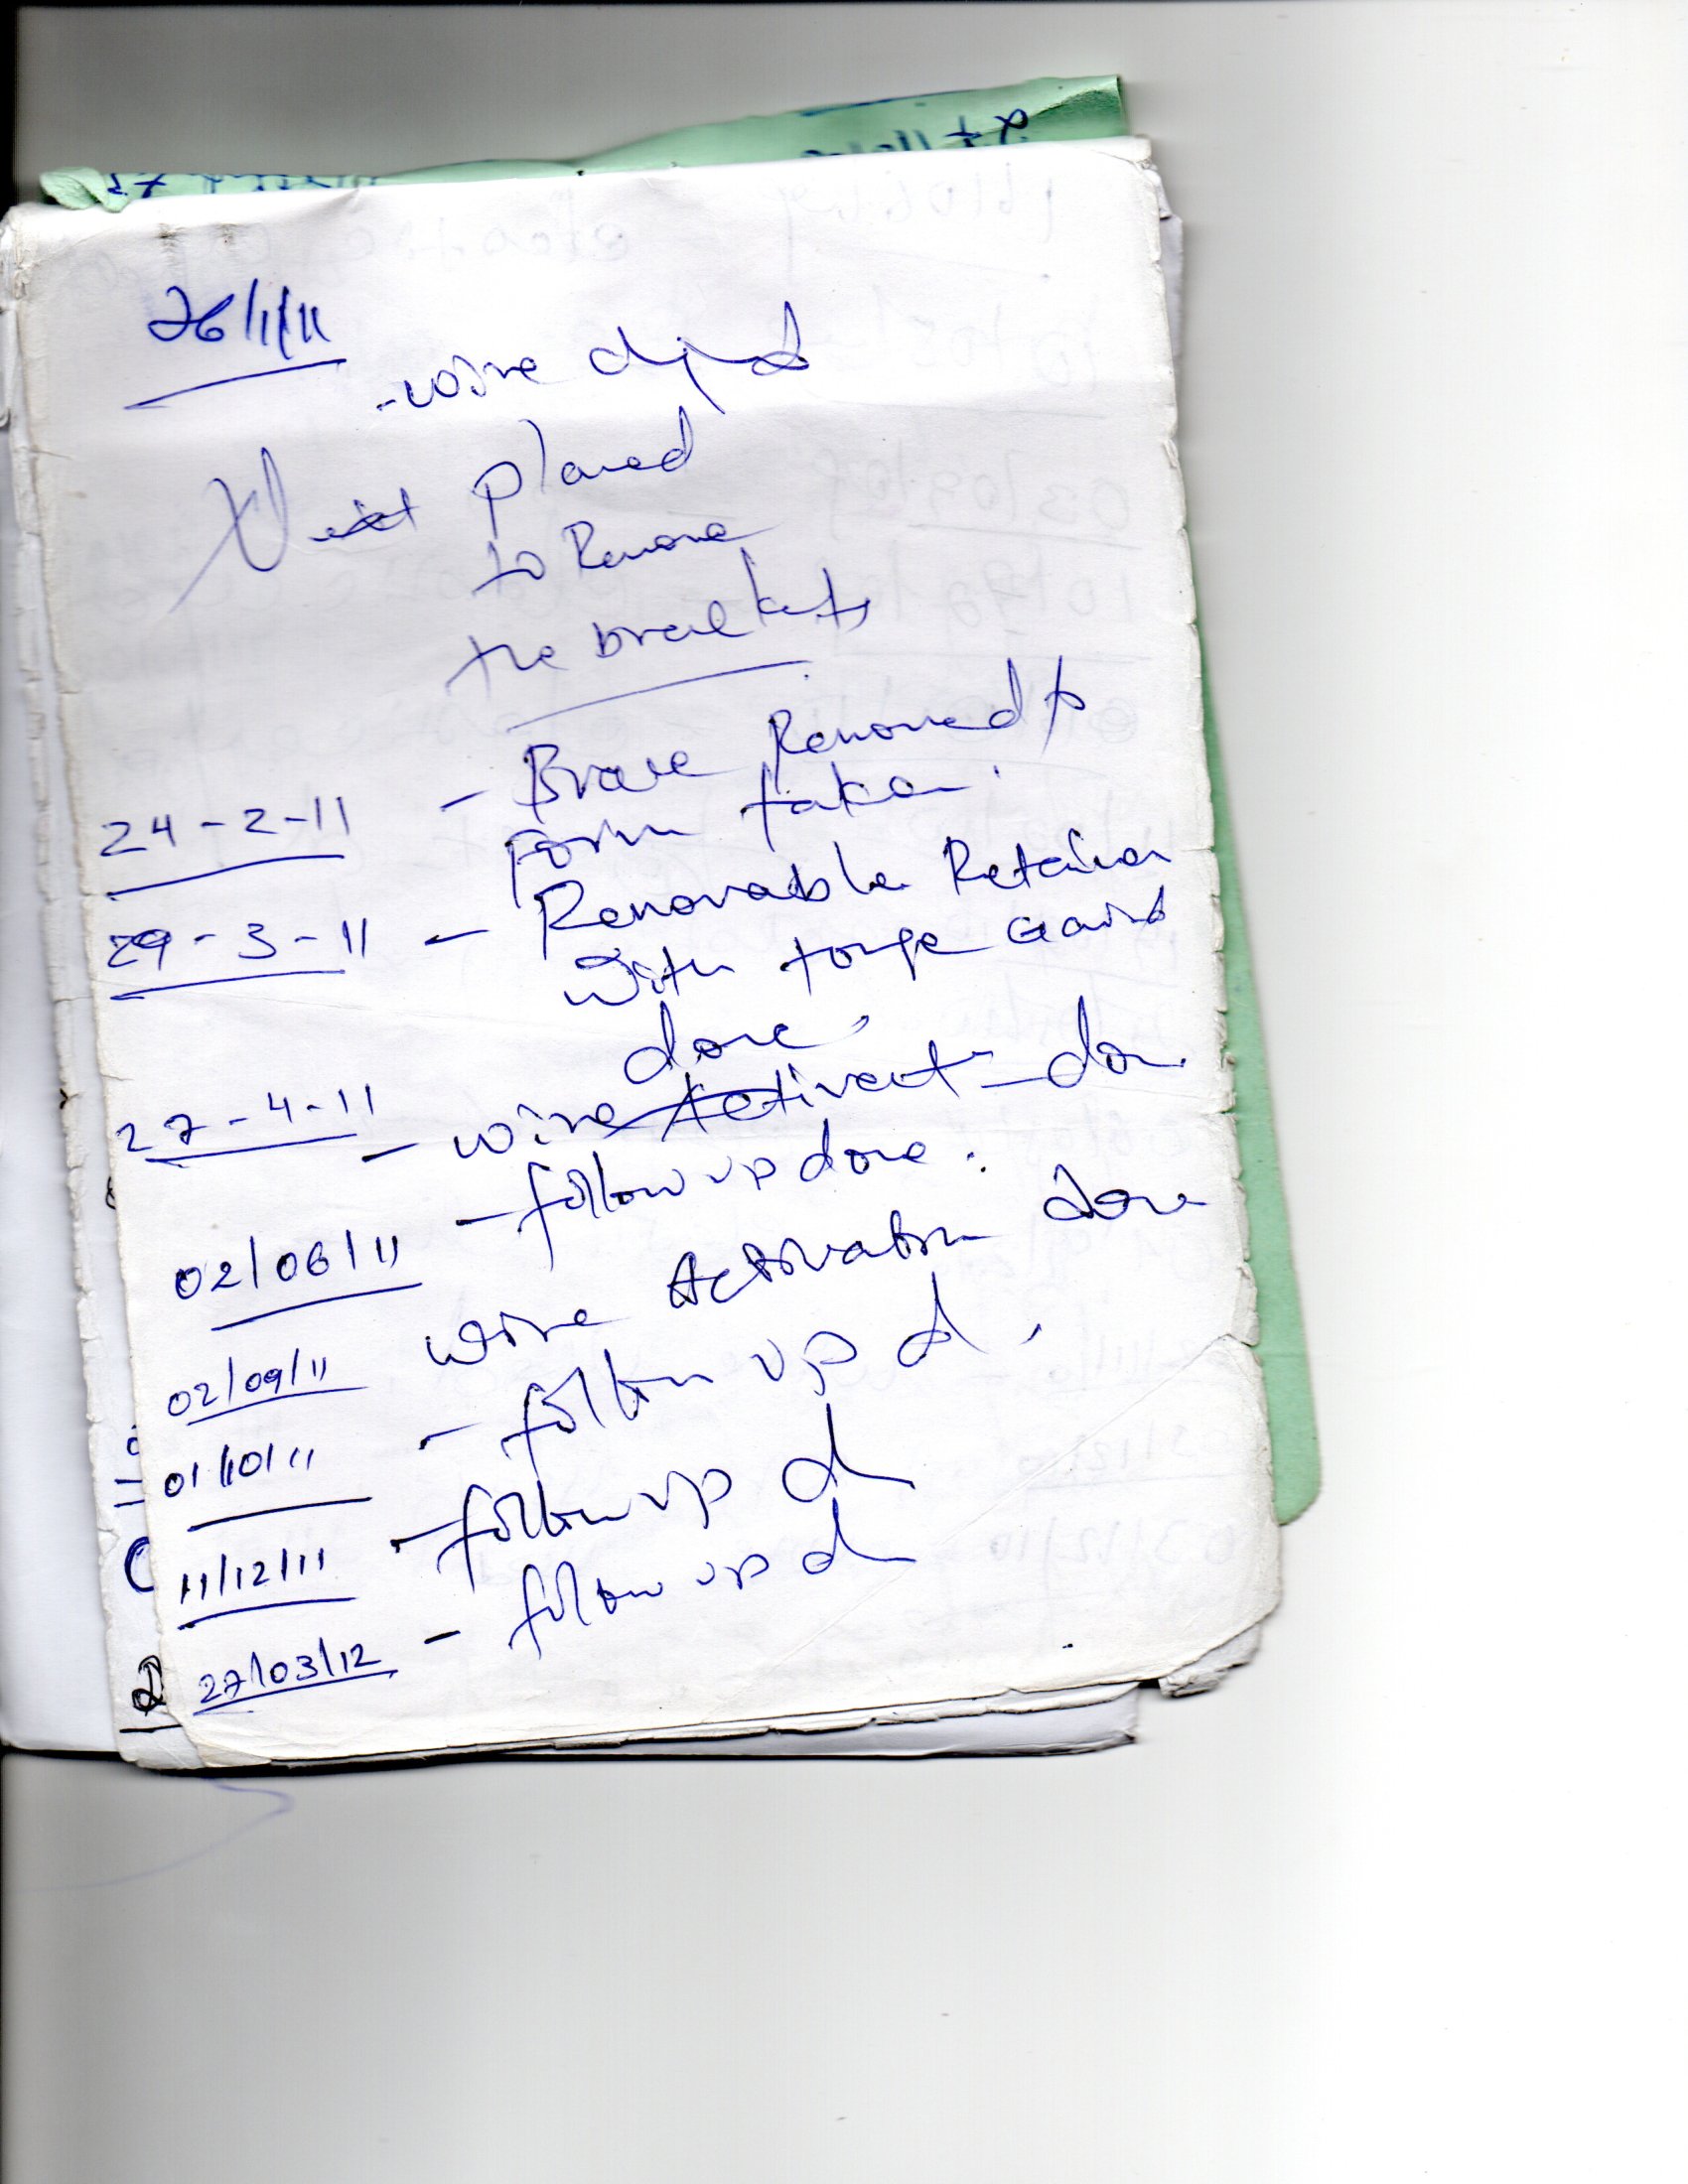 26/1/11
- wire
Next planed
to Remove
the brackets
24-2-11 - Brace Removed &
form taken.
29-3-11 - Removable Retainer
with tonge Gaird
done
27-4-11 - wire Activat - don
- follow up done.
02/06/11
wire Activation done
02/09/11
- follow up d.
01/10/11
- follow up d
11/12/11
- follow up d
27/03/12